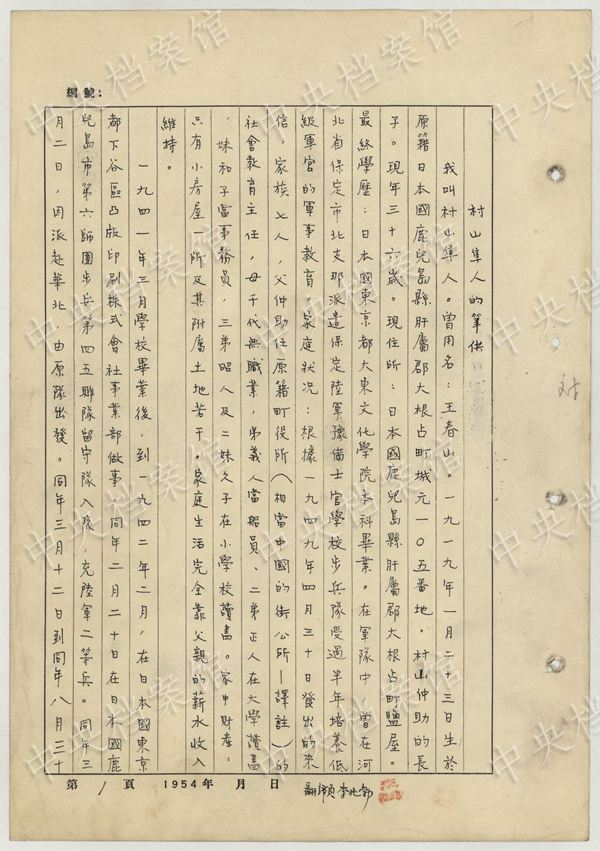 編號：
村山隼人的筆供
我叫村山隼人。曾用名：王春山。一九一九年一月二十三日生於
原籍日本國鹿兒島縣肝屬郡大根占町城元一〇五番地。村山仲助的長
子。現年三十六歲。現住所：日本國鹿兒島縣肝屬郡大根占町鹽屋。
最終學歷：日本國東京都大東文化學院本科畢業。在軍隊中，曾在河
北省保定市北支那派遣保定陸軍豫備士官學校步兵隊受過半年培養低
級軍官的軍事教育。家庭狀況：根據一九四九年四月三十日發出的來
信，家族七人，父仲助任原籍町役所（相當中國的街公所—譯註）的
社會教育主任，母千代無職業，弟義人當船員、二弟正人在大學讀書
，妹和子當事務員，三弟昭人及二妹久子在小學校讀書。家中財產：
只有小房屋一所及其附屬土地若干。家庭生活完全靠父親的薪水收入
維持。
一九四一年三月學校畢業後，到一九四二年二月，在日本國東京
都下谷區凸版印刷株式會社事業部做事。同年二月二十日在日本國鹿
兒島市第六師團步兵第四五聯隊留守隊入隊，充陸軍二等兵。同年三
月二日，因派赴華北，由原隊出發。同年三月十二日到同年八月三十
第1頁 1954年 月 日
中央档案馆